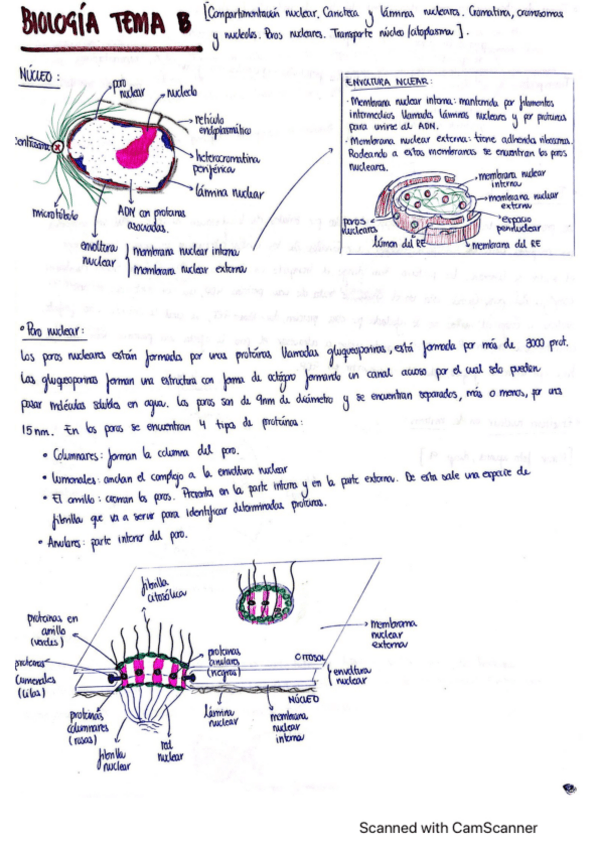 BIOLOGÍA TEMA 8
[Compartimentación nuclear. Carioteca y láminas nucleares. Cromatina, cromosomas
y nucleolo. Poros nucleares. Transporte núcleo/citoplasma].
NÚCLEO:
poro nuclear
nucleolo
retículo endoplasmático
heterocromatina periférica
lámina nuclear
ADN con proteínas asociadas.
microtúbulo
centrosoma
envoltura nuclear
membrana nuclear interna
membrana nuclear externa
ENVOLTURA NUCLEAR:
· Membrana nuclear interna: mantenida por filamentos
intermedios llamada láminas nucleares y por proteínas
para unirse al ADN.
· Membrana nuclear externa: tiene adherida ribosomas.
Rodeando a estas membranas se encuentran los poros
nucleares.
membrana nuclear interna
membrana nuclear externa
espacio perinuclear
membrana del RE
lúmen del RE
poros nucleares
• Poro nuclear:
Los poros nucleares están formada por unas proteínas llamadas
está formada por más de 3000 prot.
Las forman una estructura con forma de octógno formando un canal acuoso por el cual solo pueden
pasar moléculas solubles en agua. Los poros son de 9nm de diámetro y se encuentran separados, más o menos, por unos
15nm. En los poros se encuentran 4 tipos de proteínas:
• Columnares: forman la columna del poro.
• Lumenales: anclan el complejo a la envoltura nuclear
• El anillo: coronan los poros. Presenta en la parte interna y en la parte externa. De esta sale una especie de
fibrilla que va a servir para identificar determinadas proteínas.
• Anulares: parte interior del poro.
fibrilla citosólica
proteínas en anillo (verdes)
proteínas lumenales (lilas)
proteínas columnares (rosas)
fibrilla nuclear
red nuclear
proteínas anulares (negras)
CITOSOL
NÚCLEO
lámina nuclear
membrana nuclear interna
membrana nuclear externa
envoltura nuclear
Scanned with CamScanner